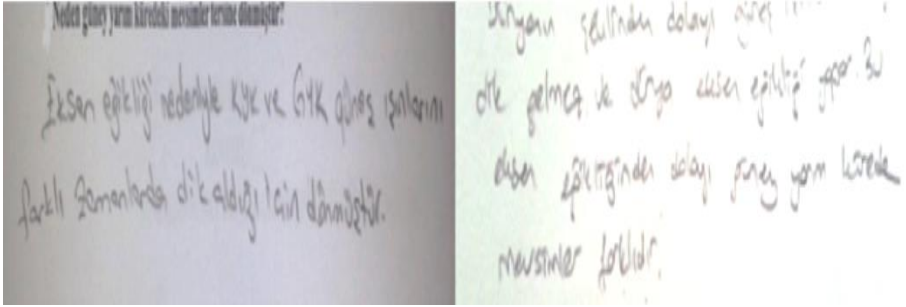 Neden güney yarım küredeki mevsimler tersine dönmüştür?
Eksen eğikliği nedeniyle KYK ve GYK güneş ışınlarını
farklı zamanlarda dik aldığı için dönmüştür.
Dünyanın şeklinden dolayı güneş
dik gelmez ve dünya eksen eğikliği yapar. Bu
eksen eğikliğinden dolayı güney yarım kürede
mevsimler farklıdır.